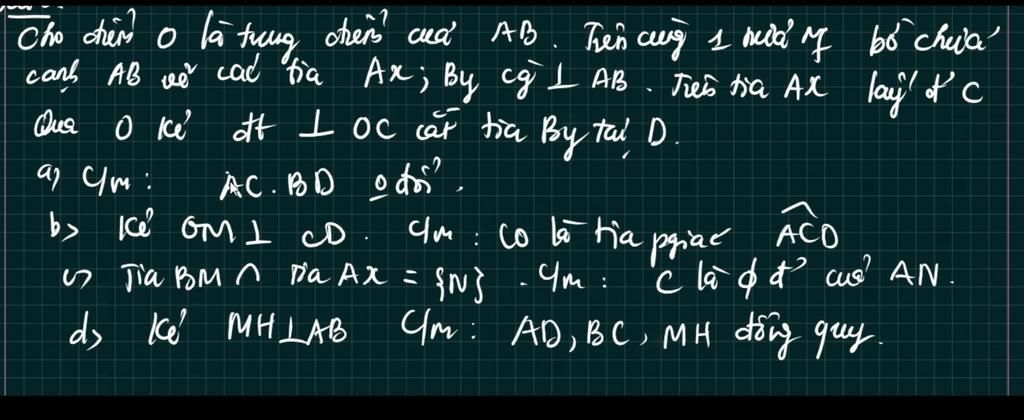 Cho điểm O là trung điểm của AB. Trên cùng 1 nửa mf bờ chứa
cạnh AB vẽ các tia Ax; By cg ⊥ AB. Trên tia Ax lấy đ' C
Qua O kẻ đt ⊥ OC cắt tia By tại D.
a) C/m: AC.BD o đổi.
b> Kẻ OM ⊥ CD. C/m: CO là tia pgiác \widehat{ACD}
c) Tia BM ∩ tia Ax = {N}. C/m: C là đ' của AN.
d> Kẻ MH⊥AB C/m: AD, BC, MH đồng quy.